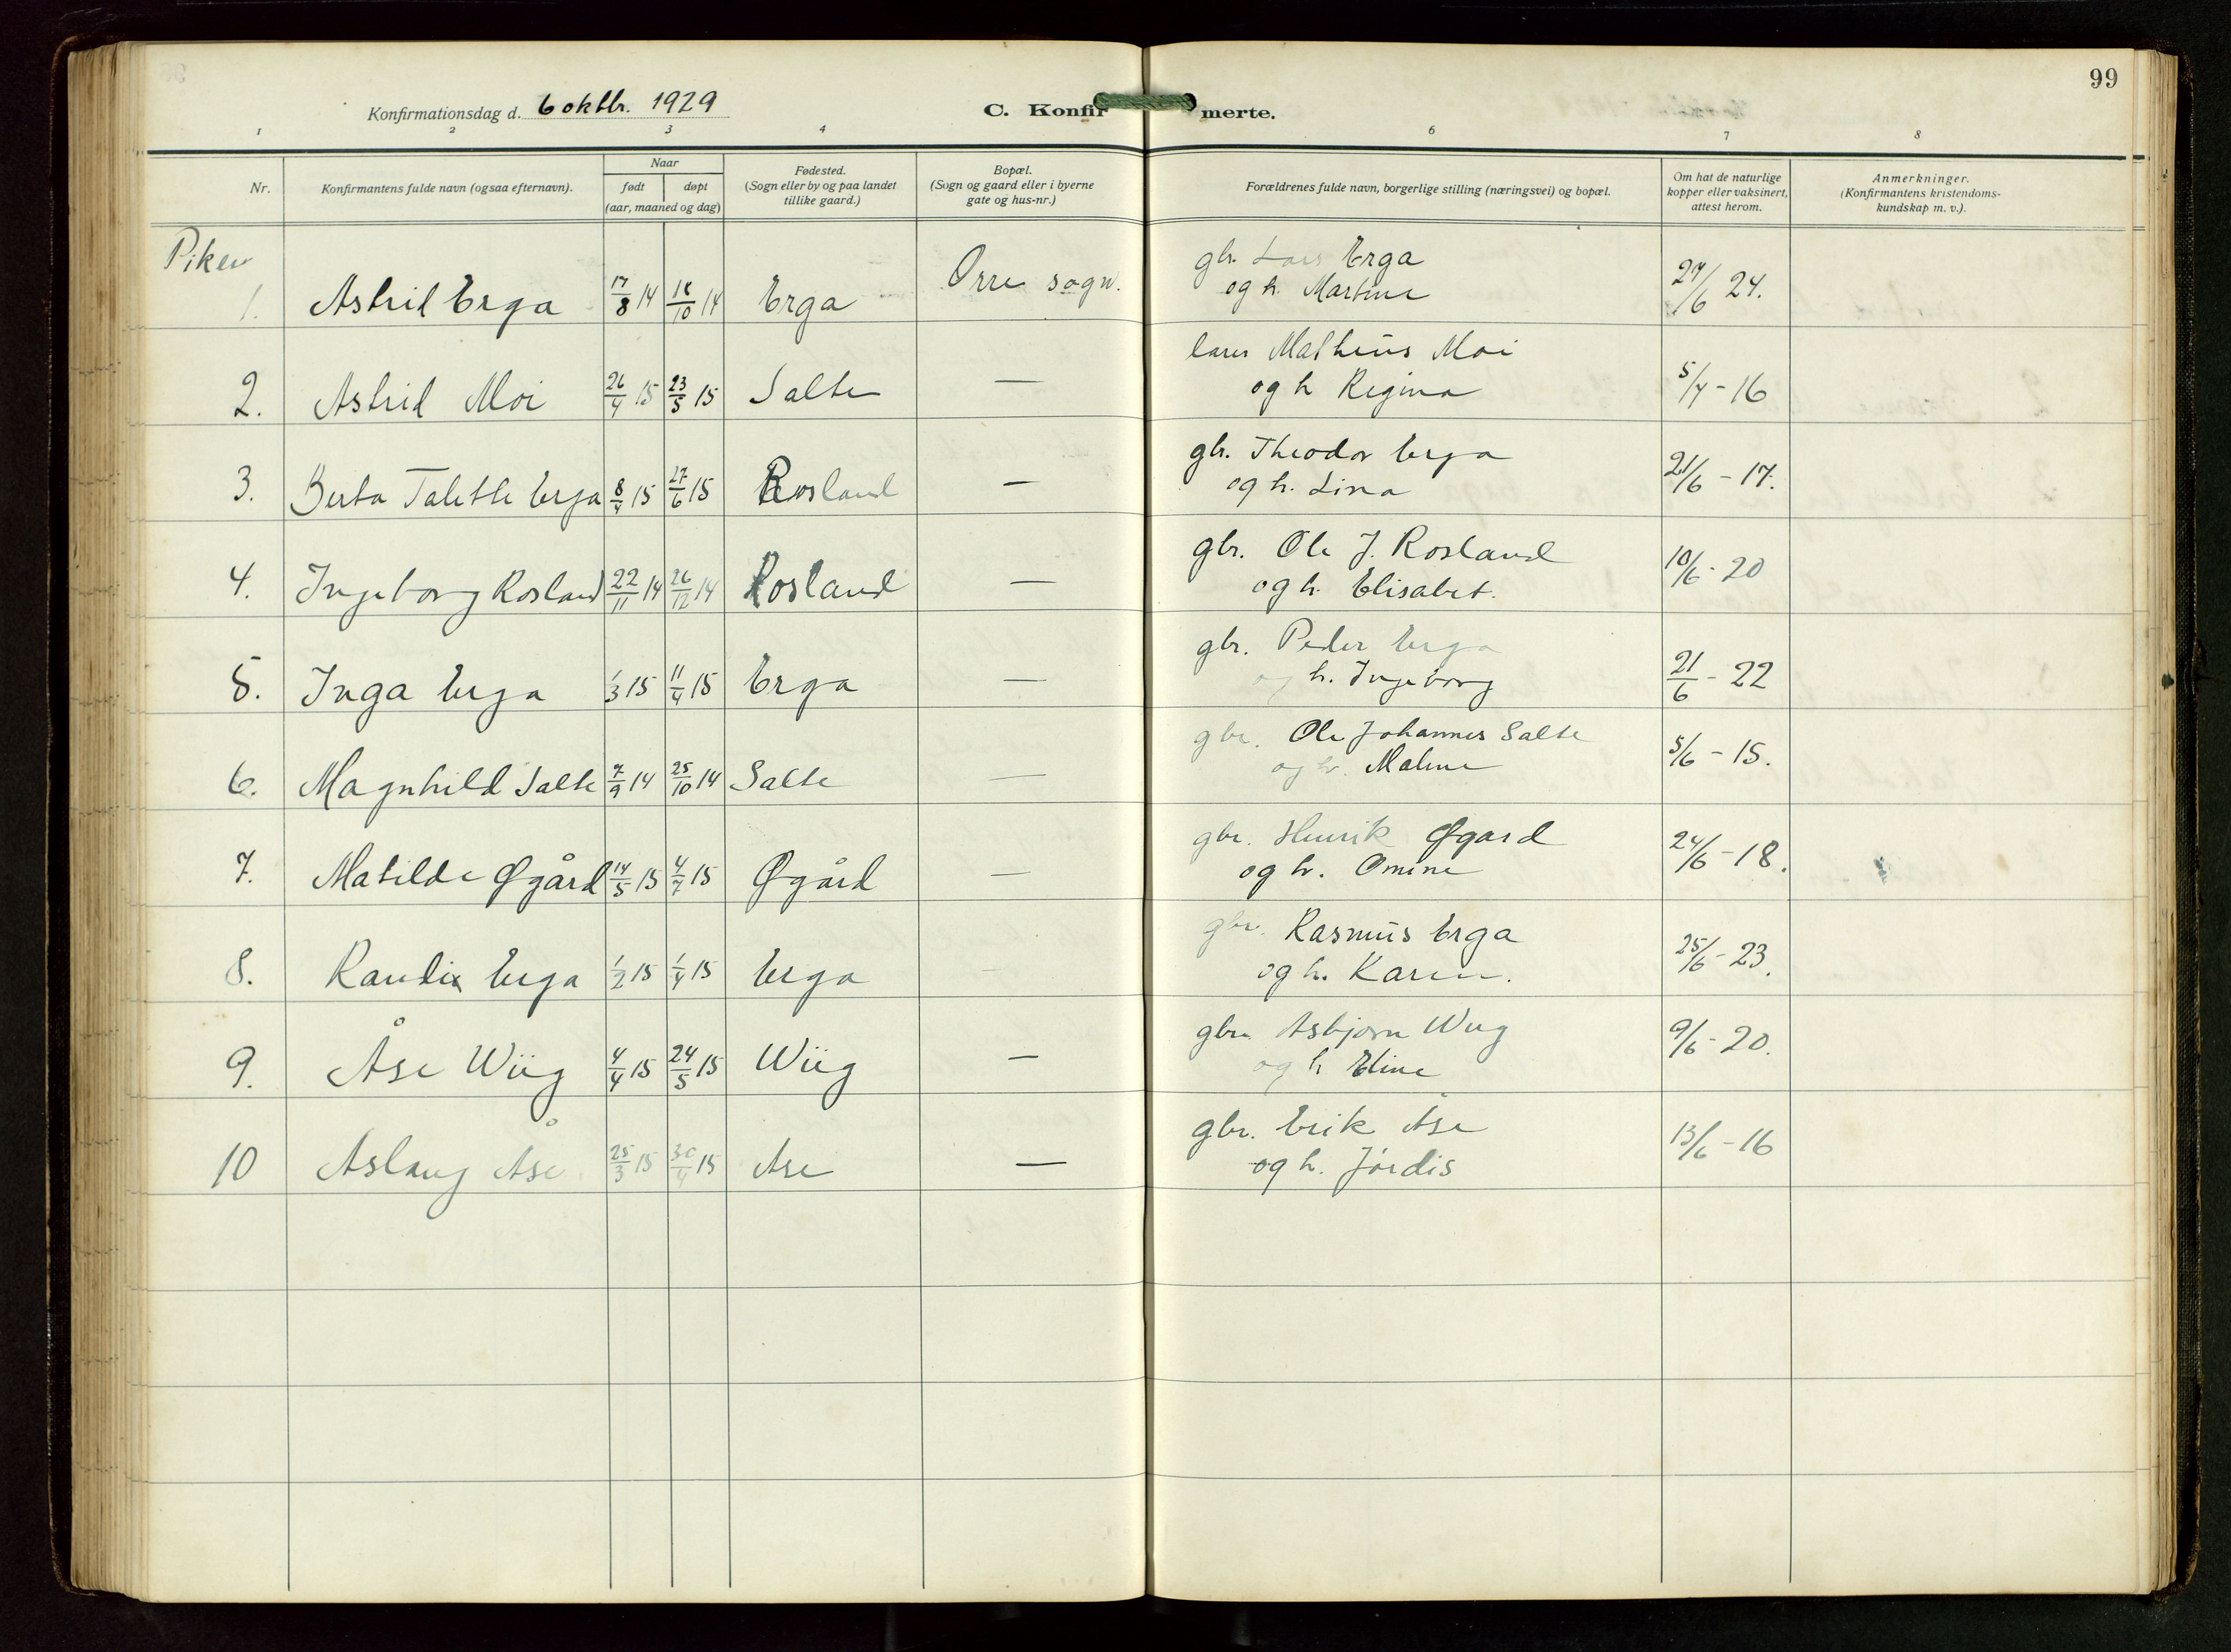 99
Konfirmationsdag d. 6 oktbr. 1929
C. Konfirmerte.
1 2 3 4 6 7 8
Nr.
Konfirmantens fulde navn (ogsaa efternavn).
Naar
født døpt
(aar, maaned og dag)
Fødested.
(Sogn eller by og paa landet
tillike gaard.)
Bopæl.
(Sogn og gaard eller i byerne
gate og hus-nr.)
Forældrenes fulde navn, borgerlige stilling (næringsvei) og bopæl.
Om hat de naturlige
kopper eller vaksinert,
attest herom.
Anmerkninger.
(Konfirmantens kristendoms-
kundskap m. v.).
Piker
gbr. Lars Erga
1. Astrid Erga 17/8 14 18/10 14 Erga Orre sogn. og h. Martine 27/6 24.
Matheus Moi
2. Astrid Moi 26/4 15 23/5 15 Salte — og h Regina 5/4 - 16
gbr. Theodor Erga
3. Berta Talette Erga 8/4 15 27/6 15 Rosland — og h. Lina 21/6 - 17.
gbr. Ole J. Rosland
4. Ingeborg Rosland 22/11 14 26/12 14 Rosland — og h. Elisabet. 10/6 - 20
gbr. Peder Erga
5. Inga Erga 1/3 15 11/4 15 Erga — og h. Ingeborg 21/6 - 22
gbr. Ole Johannes Salte
6. Magnhild Salte 7/9 14 25/10 14 Salte — og h. Malene 5/6 - 15.
gbr. Henrik Øgard
7. Matilde Øgård 14/5 15 4/7 15 Øgård — og h. Omine 24/6 - 18.
gbr. Rasmus Erga
8. Randi Erga 1/2 15 1/4 15 Erga — og h. Karen. 25/6 - 23.
gbr. Asbjørn Wiig
9. Åse Wiig 4/4 15 24/5 15 Wiig — og h Eline 9/6 - 20.
gbr. Erik Åse
10 Aslaug Åse 25/3 15 30/4 15 Åse — og h. Jórdis 13/6 - 16